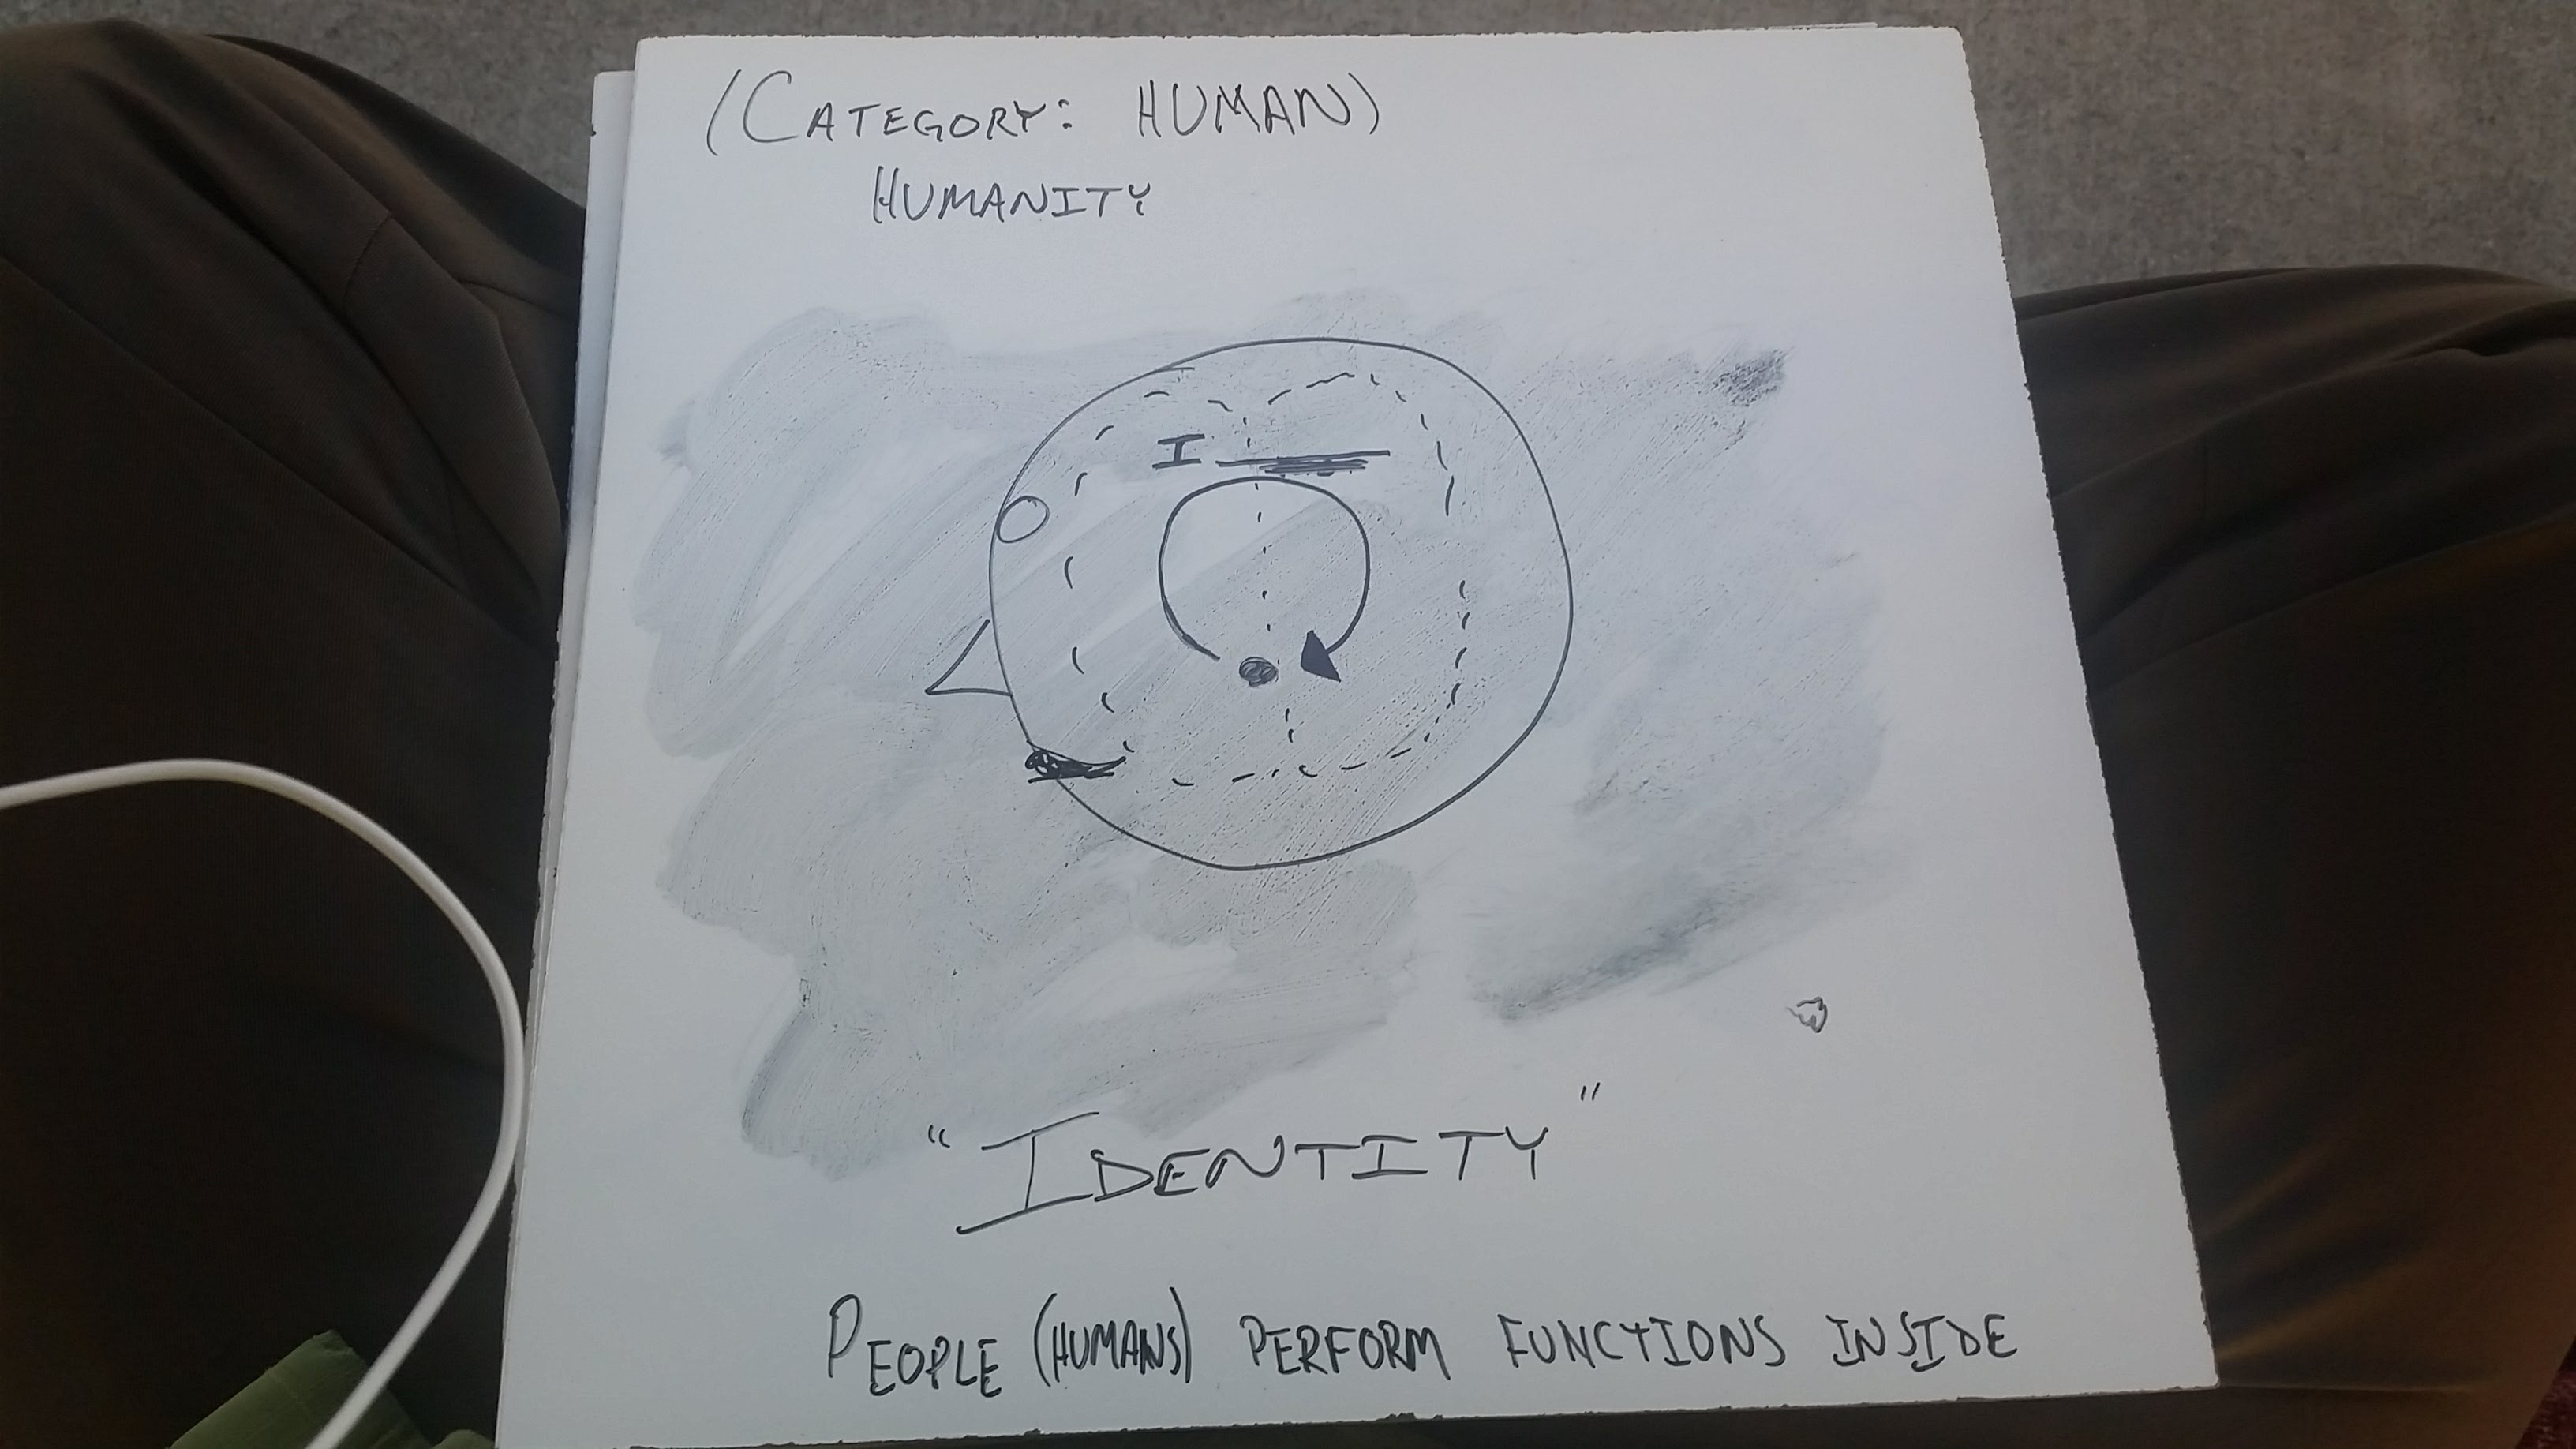 (CATEGORY: HUMAN)
HUMANITY
I
"IDENTITY"
PEOPLE (HUMANS) PERFORM FUNCTIONS INSIDE